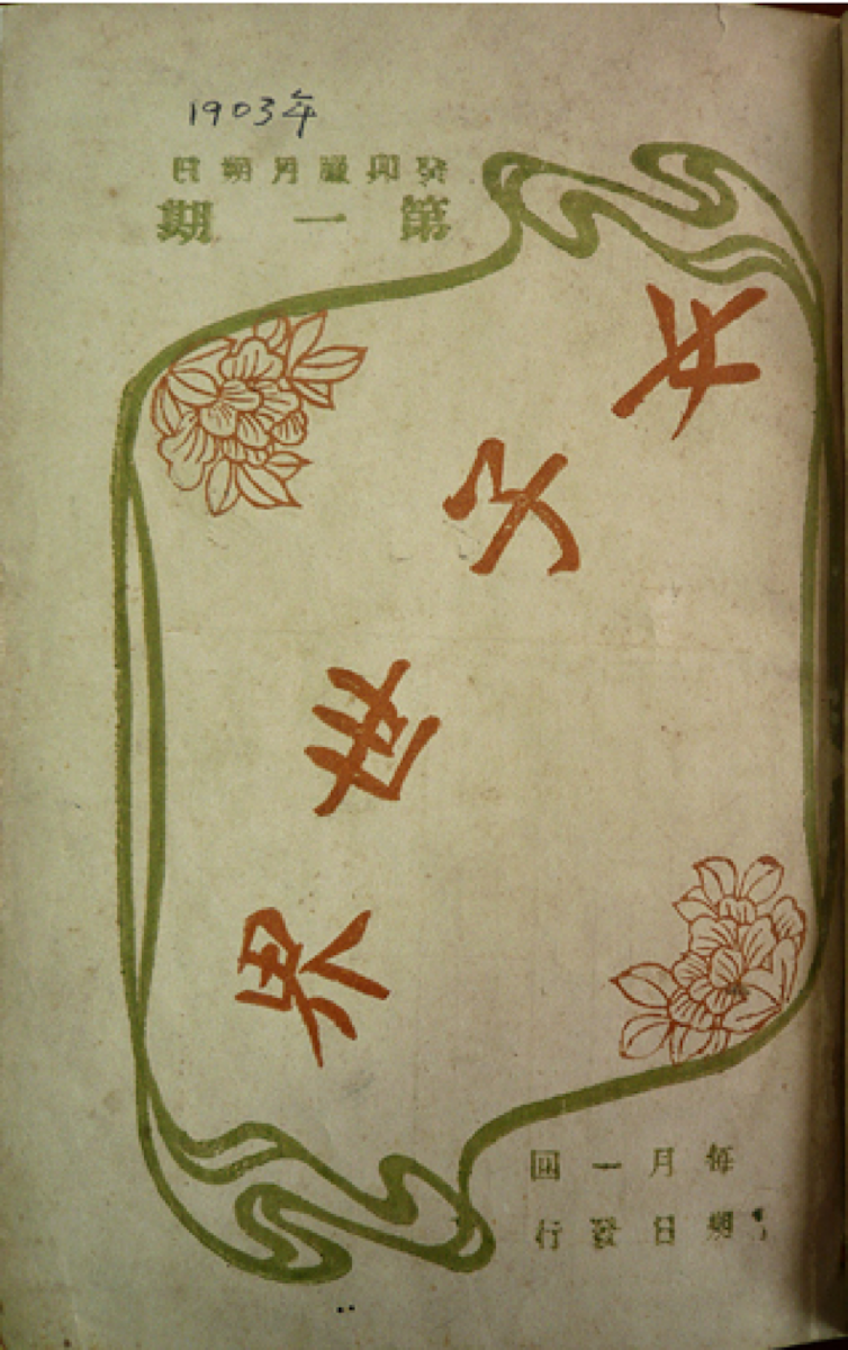 1903年
癸卯臘月朔日
第一期
女子世界
每月一回
朔日發行